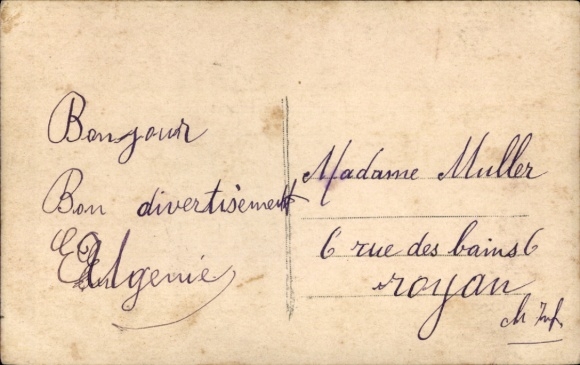 Bonjour
Bon divertisement
Madame Muller
6 rue des bains 6
royan